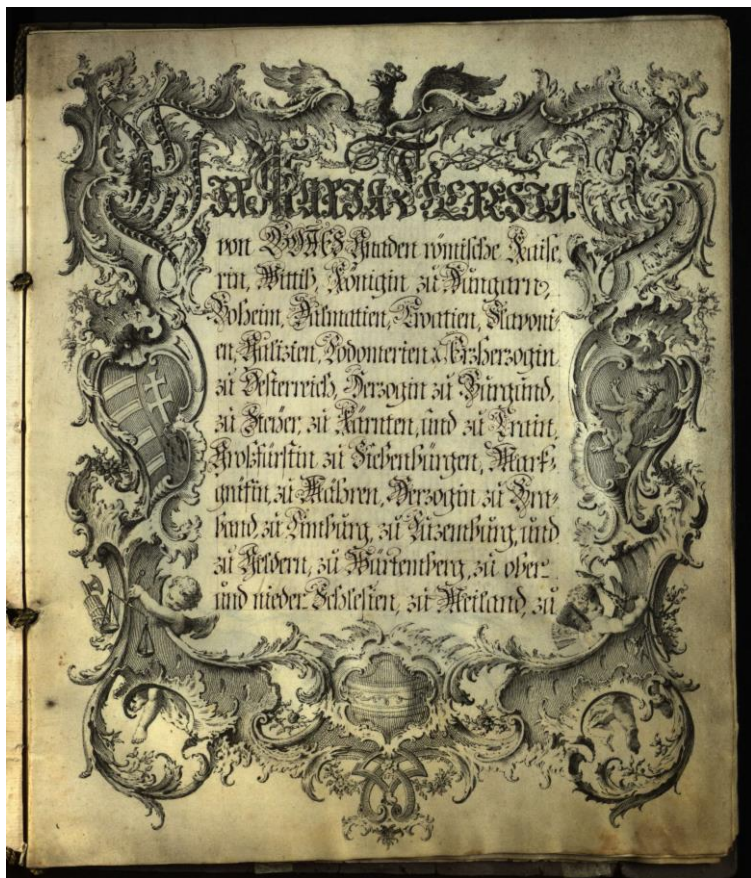 WIR MARIA THERESIA
von GOTTES Gnaden römische Kaise,
rin, Wittib, Königin zu Hungarn,
Boheim, Dalmatien, Croatien, Slavoni-
en, Galizien, Lodomerien &c Erzherzogin
zu Oesterreich, Herzogin zu Burgund,
zu Steyer, zu Kärnten, und zu Crain,
Großfürstin zu Siebenbürgen, Mark-
gräfin zu Mähren, Herzogin zu Bra-
band, zu Limburg, zu Luzemburg, und
zu Geldern, zu Würtemberg, zu ober-
und nieder-Schlesien, zu Meiland, zu